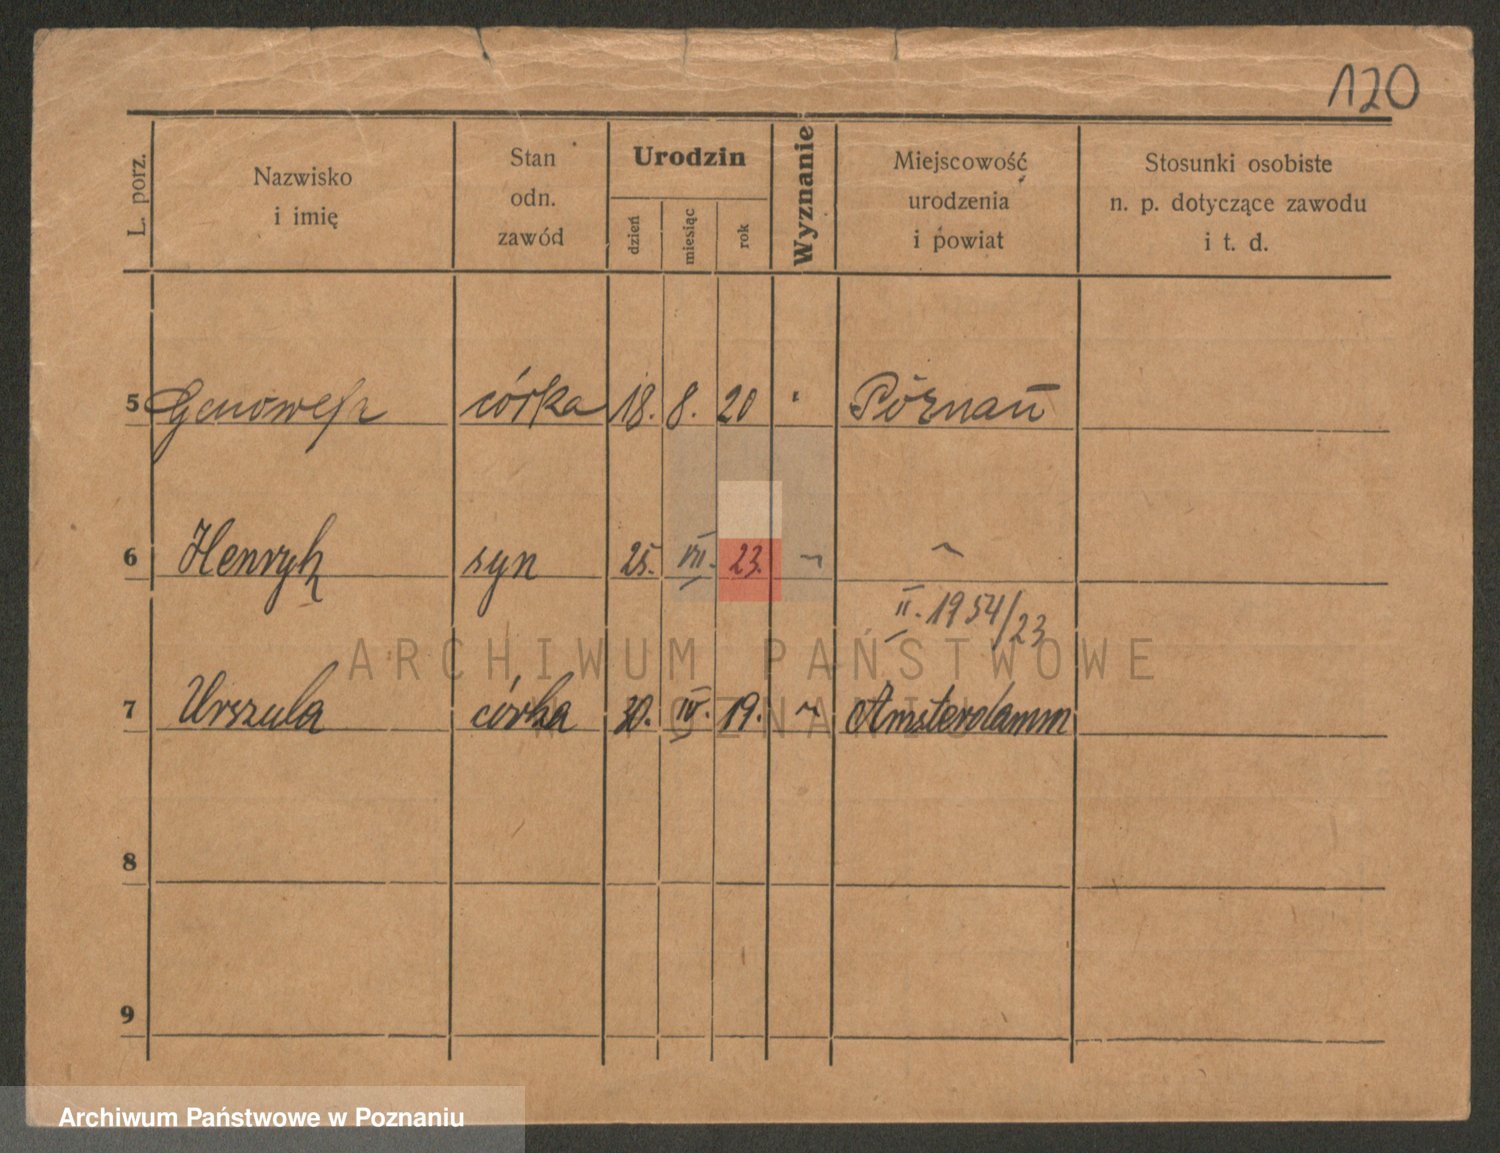 120
L. porz.
Nazwisko
i imię
Stan
odn.
zawód
Urodzin
dzień
miesiąc
rok
Wyznanie
Miejscowość
urodzenia
i powiat
Stosunki osobiste
n. p. dotyczące zawodu
i t. d.
5 Genowefa córka 18. 8. 20 " Poznań
6 Henryk syn 25. VII. 23. ~ ~
II. 1954/23
ARCHIWUM PAŃSTWOWE
W POZNANIU
7 Urszula córka 30. IV. 19. ~ Amsterdamm
8
9
Archiwum Państwowe w Poznaniu